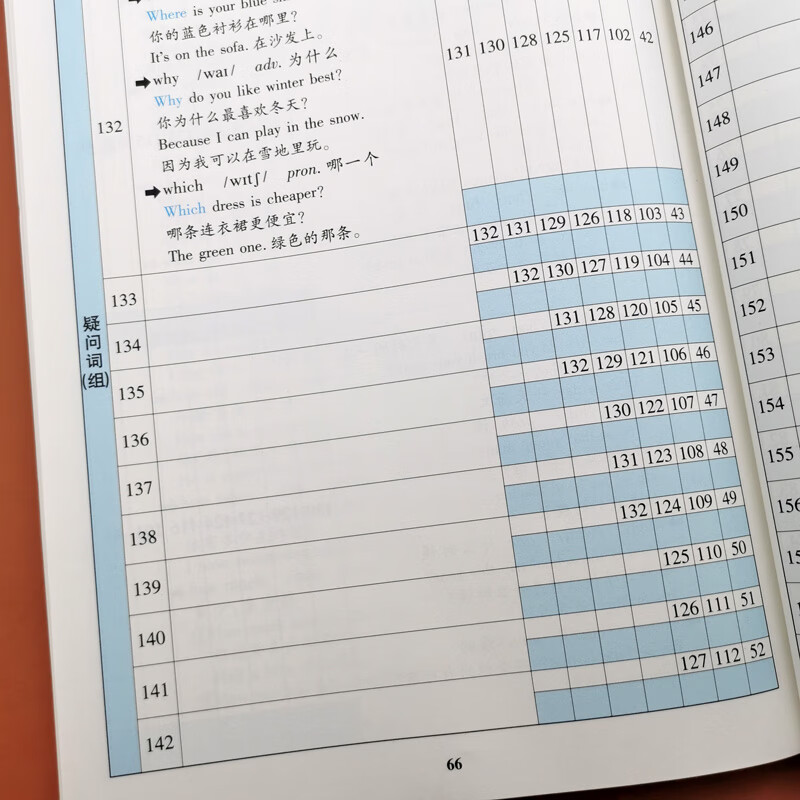 Where is your blue
你的蓝色衬衫在哪里?
It's on the sofa. 在沙发上。
why /waɪ/ adv. 为什么
Why do you like winter best?
132
你为什么最喜欢冬天?
Because I can play in the snow.
因为我可以在雪地里玩。
which /wɪtʃ/ pron. 哪一个
Which dress is cheaper?
哪条连衣裙更便宜?
The green one. 绿色的那条。
131 130 128 125 117 102 42
疑问词(组)
133 132 131 129 126 118 103 43
134 132 130 127 119 104 44
135 131 128 120 105 45
136 132 129 121 106 46
137 130 122 107 47
138 131 123 108 48
139 132 124 109 49
140 125 110 50
141 126 111 51
142 127 112 52
66
146
147
148
149
150
151
152
153
154
155
156